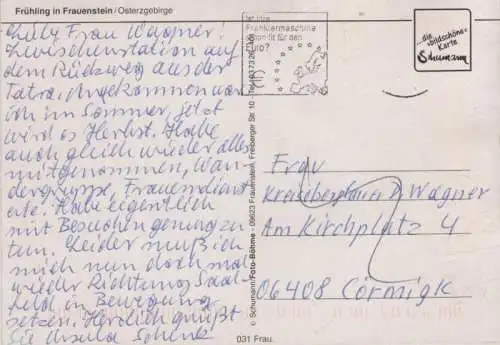 Frühling in Frauenstein/Osterzgebirge
Liebe Frau Wagner!
Zwischenstation auf
dem Rückweg aus der
Tatra. Angekommen war
ich im Sommer, jetzt
wird es Herbst. Habe
auch gleich wieder alles
mitgenommen, Wan-
dergruppe, Frauendienst
Habe eigentlich
mit Besuchen genug zu
tun. Leider muß ich
mich nun doch mal
wieder Richtung Saal-
feld in Bewegung
setzen. Herzlich grüßt
Sie Ursula Schenk
Ist Ihre
Frankiermaschine
schon fit für den
Euro?
...die
»bildschöne«
Karte
Schumann
© Schumann/Foto-Böhme - 09623 Frauenstein, Freiberger Str. 10
Frau
Wagner
Am Kirchplatz 4
06408 Cörmigk
031 Frau.